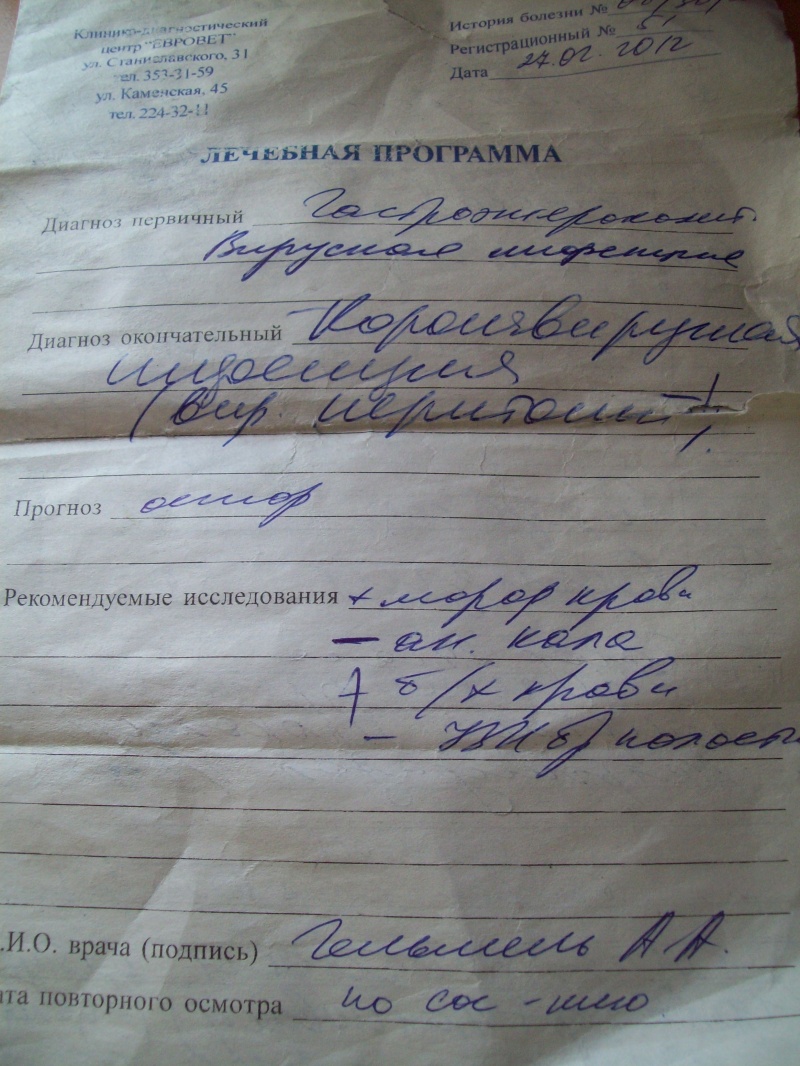 Клинико-диагностический
центр "ЕВРОВЕТ"
ул. Станиславского, 31
тел. 353-31-59
ул. Каменская, 45
тел. 224-32-11
История болезни №
Регистрационный №
Дата 27.02.2012
ЛЕЧЕБНАЯ ПРОГРАММА
Диагноз первичный Гастроэнтероколит.
Вирусная инфекция
Диагноз окончательный Коронавирусная
инфекция
(вир. перитонит)!
Прогноз остор
Рекомендуемые исследования + морф крови
- ан. кала
+ б/х крови
- УЗИ бр полости
.И.О. врача (подпись) А.А.
ата повторного осмотра по сос-нию